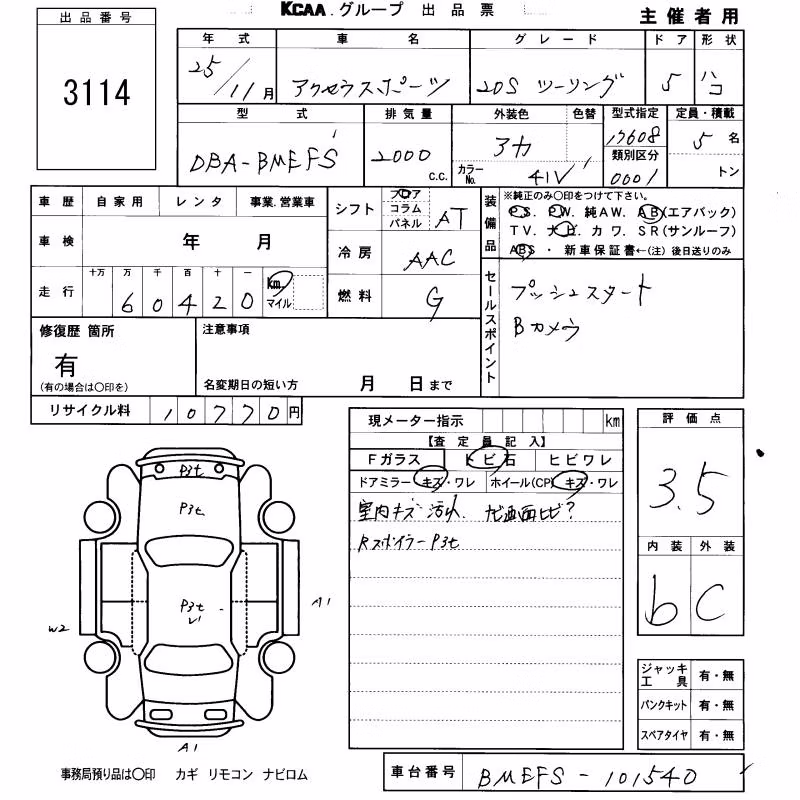 KCAA.グループ 出品票
主催者用
出品番号
3114
年式 車名 グレード ドア 形状
25/11月 アクセラスポーツ 20S ツーリング 5 ハコ
型式 排気量 外装色 色替 型式指定 定員・積載
DBA-BMEFS 2000 c.c. アカ 17608 5名
カラーNo. 41V 類別区分 0001 トン
車歴 自家用 レンタ 事業.営業車
シフト フロア コラム パネル AT
装備品 ※純正のみ〇印をつけて下さい。
P.S. P.W. 純AW. AB(エアバック)
TV. ナビ カワ SR(サンルーフ)
ABS ・ 新車保証書←(注) 後日送りのみ
車検 年 月
冷房 AAC
走行 十万 万 千 百 十 一
60420 km. マイル
燃料 G
セールスポイント
プッシュスタート
Bカメラ
修復歴 箇所
有
(有の場合は〇印を)
注意事項
名変期日の短い方 月 日まで
リサイクル料 10770円
現メーター指示 km
【査定員記入】
Fガラス トビ石 ヒビワレ
ドアミラー キズ・ワレ ホイール(CP) キズ・ワレ
室内キズ 汚れ、ナビ画面ヒビ?
Rスポイラー P3t
評価点
3.5
内装 外装
b C
P3t
P3t
P3t
A1
W2
A1
ジャッキ工具 有・無
パンクキット 有・無
スペアタイヤ 有・無
事務局預り品は〇印 カギ リモコン ナビロム
車台番号 BMEFS-101540